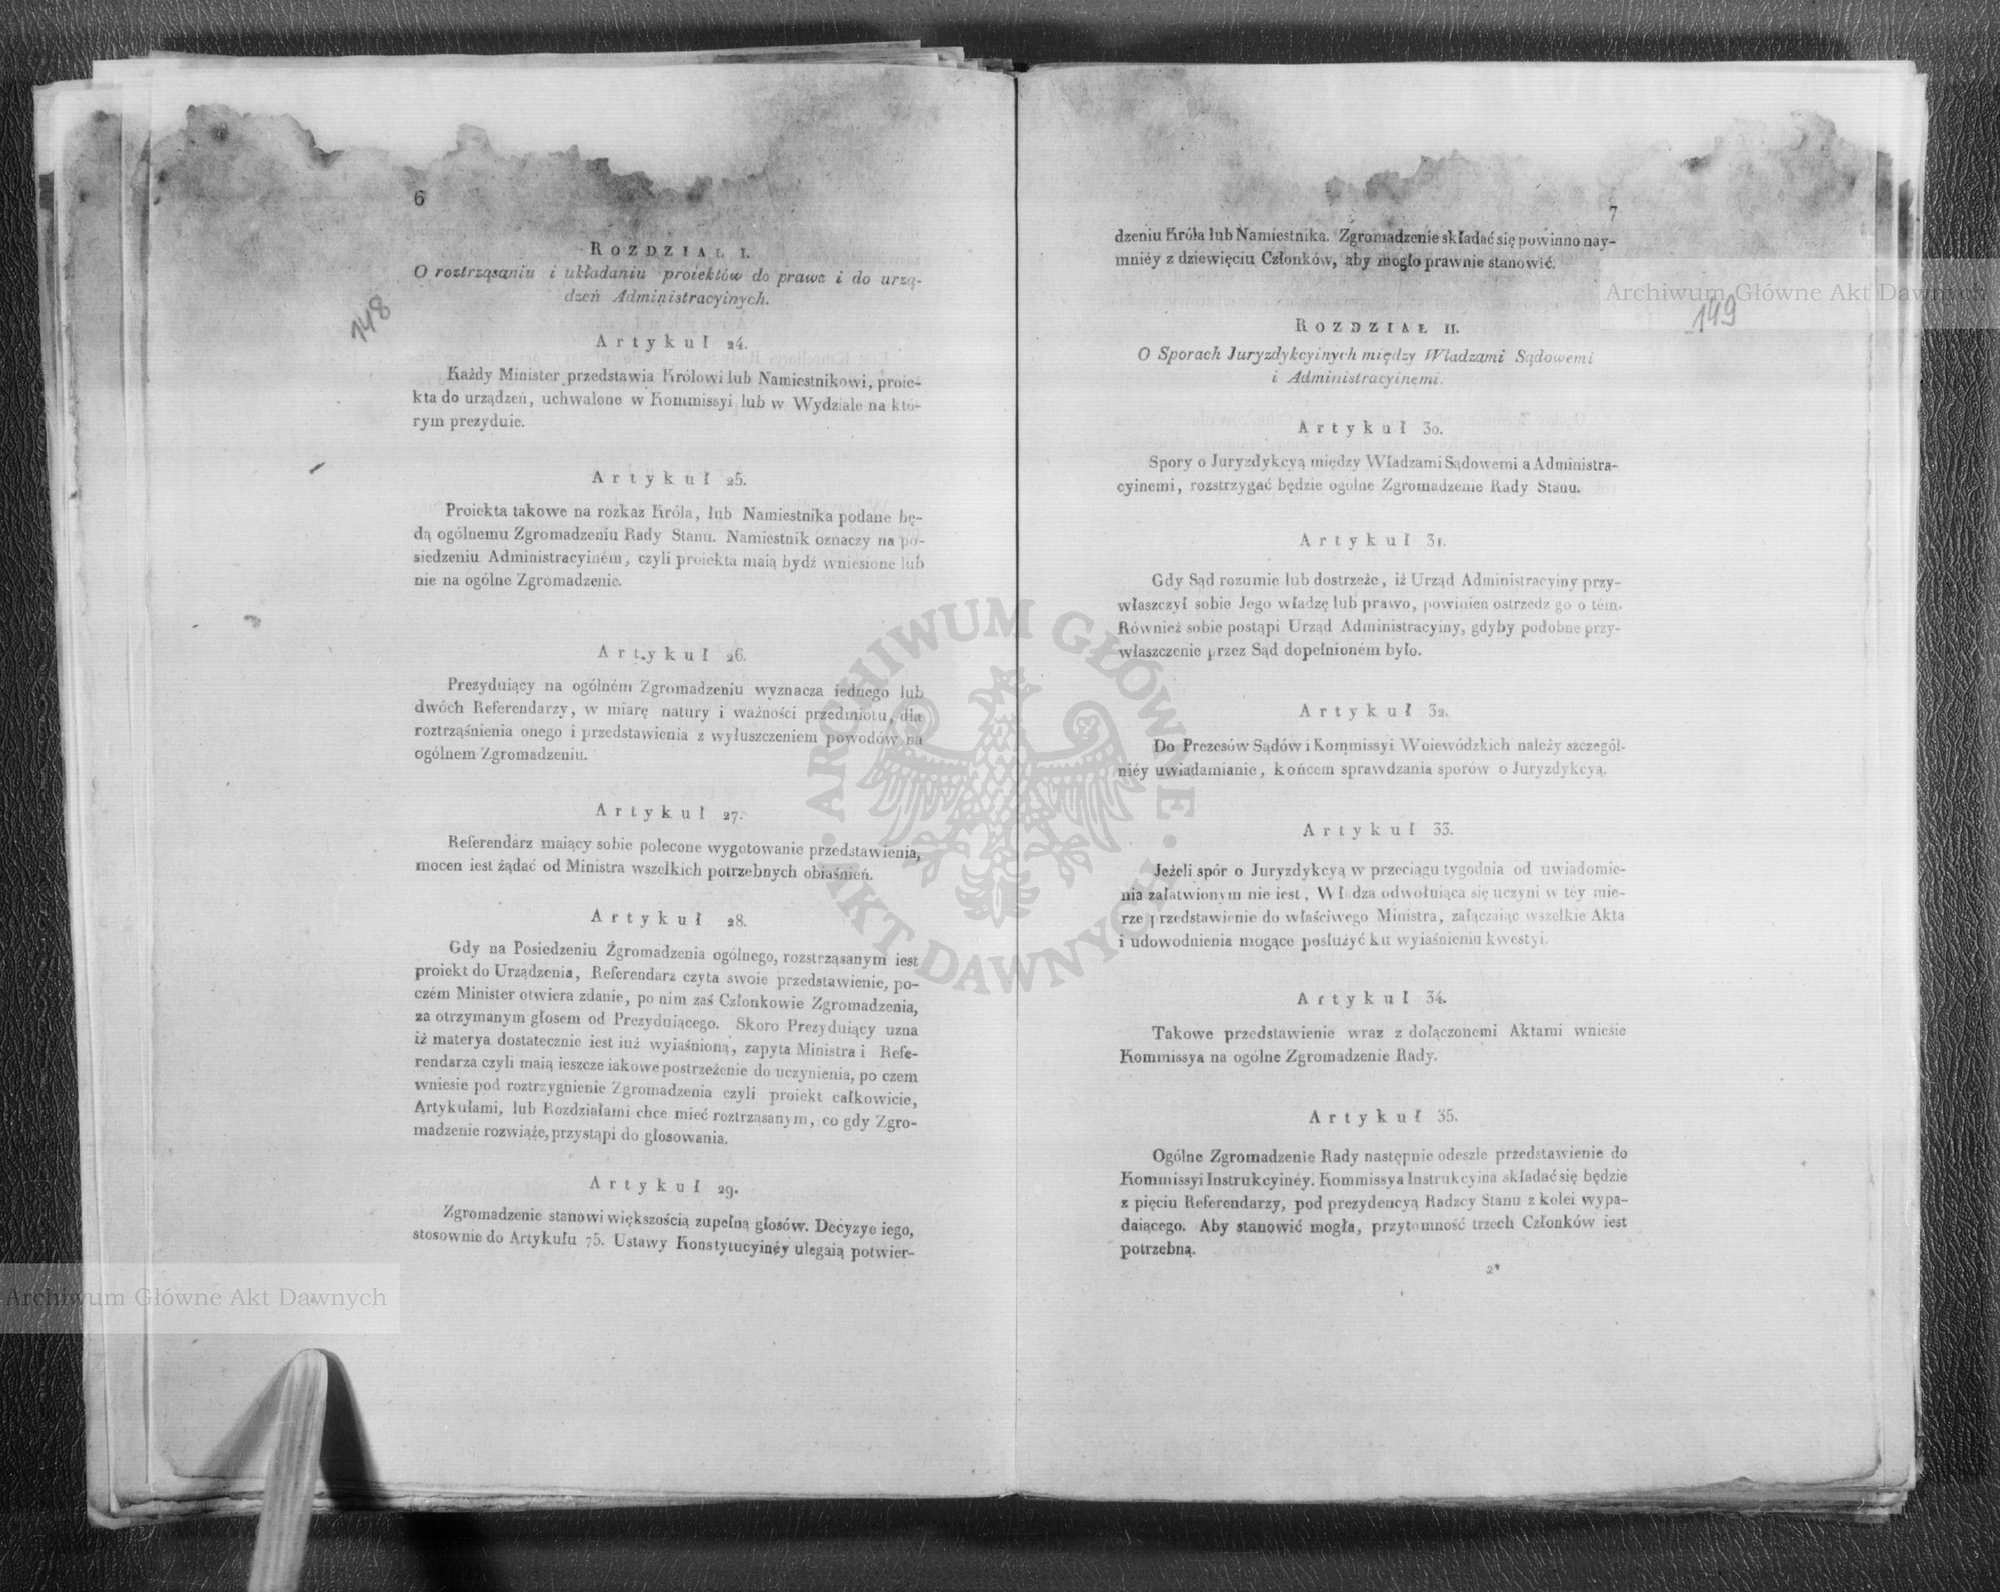 6
148
ROZDZIAŁ I.
O roztrząsaniu i układaniu proiektów do prawa i do urzą-
dzeń Administracyinych.
Artykuł 24.
Każdy Minister przedstawia Królowi lub Namiestnikowi, proie-
kta do urządzeń, uchwalone w Kommissyi lub w Wydziale na któ-
rym prezyduie.
Artykuł 25.
Proiekta takowe na rozkaz Króla, lub Namiestnika podane bę-
dą ogólnemu Zgromadzeniu Rady Stanu. Namiestnik oznaczy na po-
siedzeniu Administracyiném, czyli proiekta maią bydź wniesione lub
nie na ogólne Zgromadzenie.
Artykuł 26.
Prezyduiący na ogólném Zgromadzeniu wyznacza iednego lub
dwóch Referendarzy, w miarę natury i ważności przedmiotu, dla
roztrząśnienia onego i przedstawienia z wyłuszczeniem powodów na
ogólnem Zgromadzeniu.
Artykuł 27.
Referendarz maiący sobie polecone wygotowanie przedstawienia,
mocen iest żądać od Ministra wszelkich potrzebnych obiaśnień.
Artykuł 28.
Gdy na Posiedzeniu Zgromadzenia ogólnego, rozstrząsanym iest
proiekt do Urządzenia, Referendarz czyta swoie przedstawienie, po-
czém Minister otwiera zdanie, po nim zaś Członkowie Zgromadzenia,
za otrzymanym głosem od Prezyduiącego. Skoro Prezyduiący uzna
iż materya dostatecznie iest iuż wyiaśnioną, zapyta Ministra i Refe-
rendarza czyli maią ieszcze iakowe postrzeżenie do uczynienia, po czem
wniesie pod roztrzygnienie Zgromadzenia czyli proiekt całkowicie,
Artykułami, lub Rozdziałami chce mieć roztrząsanym, co gdy Zgro-
madzenie rozwiąże, przystąpi do głosowania.
Artykuł 29.
Zgromadzenie stanowi większością zupełną głosów. Decyzye iego,
stosownie do Artykułu 75. Ustawy Konstytucyinéy ulegaią potwier-
7
dzeniu Króla lub Namiestnika. Zgromadzenie składać się powinno nay-
mniéy z dziewięciu Członków, aby mogło prawnie stanowić.
Archiwum Główne Akt Dawnych
149
ROZDZIAŁ II.
O Sporach Juryzdykcyinych między Władzami Sądowemi
i Administracyinemi.
Artykuł 30.
Spory o Juryzdykcyą między Władzami Sądowemi a Administra-
cyinemi, rozstrzygać będzie ogólne Zgromadzenie Rady Stanu.
Artykuł 31.
Gdy Sąd rozumie lub dostrzeże, iż Urząd Administracyiny przy-
właszczył sobie Jego władzę lub prawo, powinien ostrzedz go o tém.
Również sobie postąpi Urząd Administracyiny, gdyby podobne przy-
właszczenie przez Sąd dopełnioném było.
Artykuł 32.
Do Prezesów Sądów i Kommissyi Woiewódzkich należy szczegól-
niéy uwiadamianie, końcem sprawdzania sporów o Juryzdykcyą.
Artykuł 33.
Jeżeli spór o Juryzdykcyą w przeciągu tygodnia od uwiadomie-
nia załatwionym nie iest, Władza odwołuiąca się uczyni w téy mie-
rze przedstawienie do właściwego Ministra, załączaiąc wszelkie Akta
i udowodnienia mogące posłużyć ku wyiaśnieniu kwestyi.
Artykuł 34.
Takowe przedstawienie wraz z dołączonemi Aktami wniesie
Kommissya na ogólne Zgromadzenie Rady.
Artykuł 35.
Ogólne Zgromadzenie Rady następnie odeszle przedstawienie do
Kommissyi Instrukcyinéy. Kommissya Instrukcyina składać się będzie
z pięciu Referendarzy, pod prezydencyą Radzcy Stanu z kolei wypa-
daiącego. Aby stanowić mogła, przytomność trzech Członków iest
potrzebną.
2*
ARCHIWUM GŁÓWNE
AKT DAWNYCH
Archiwum Główne Akt Dawnych